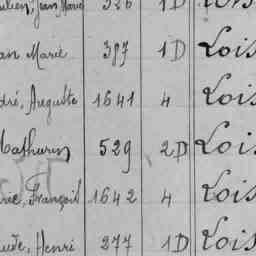 Jean Marie 326 1D Lois
an Marie 387 1D Lois
dré, Auguste 1641 4 Lois
Mathurin 529 2D Lois
François 1642 4 Lois
Henri 277 1D Lois